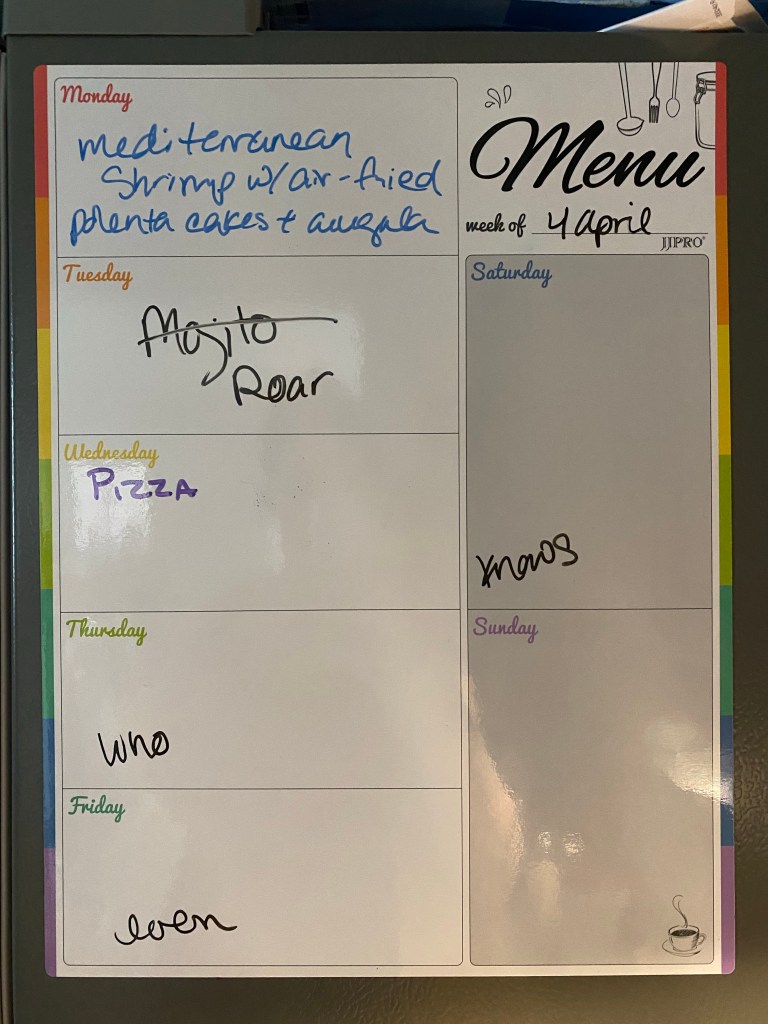 Monday
mediterranean
shrimp w/ air-fried
polenta cakes + arugula
Tuesday
Mojito
Roar
Wednesday
PIZZA
Thursday
who
Friday
even
Menu
week of 4 april
JJPRO®
Saturday
knows
Sunday